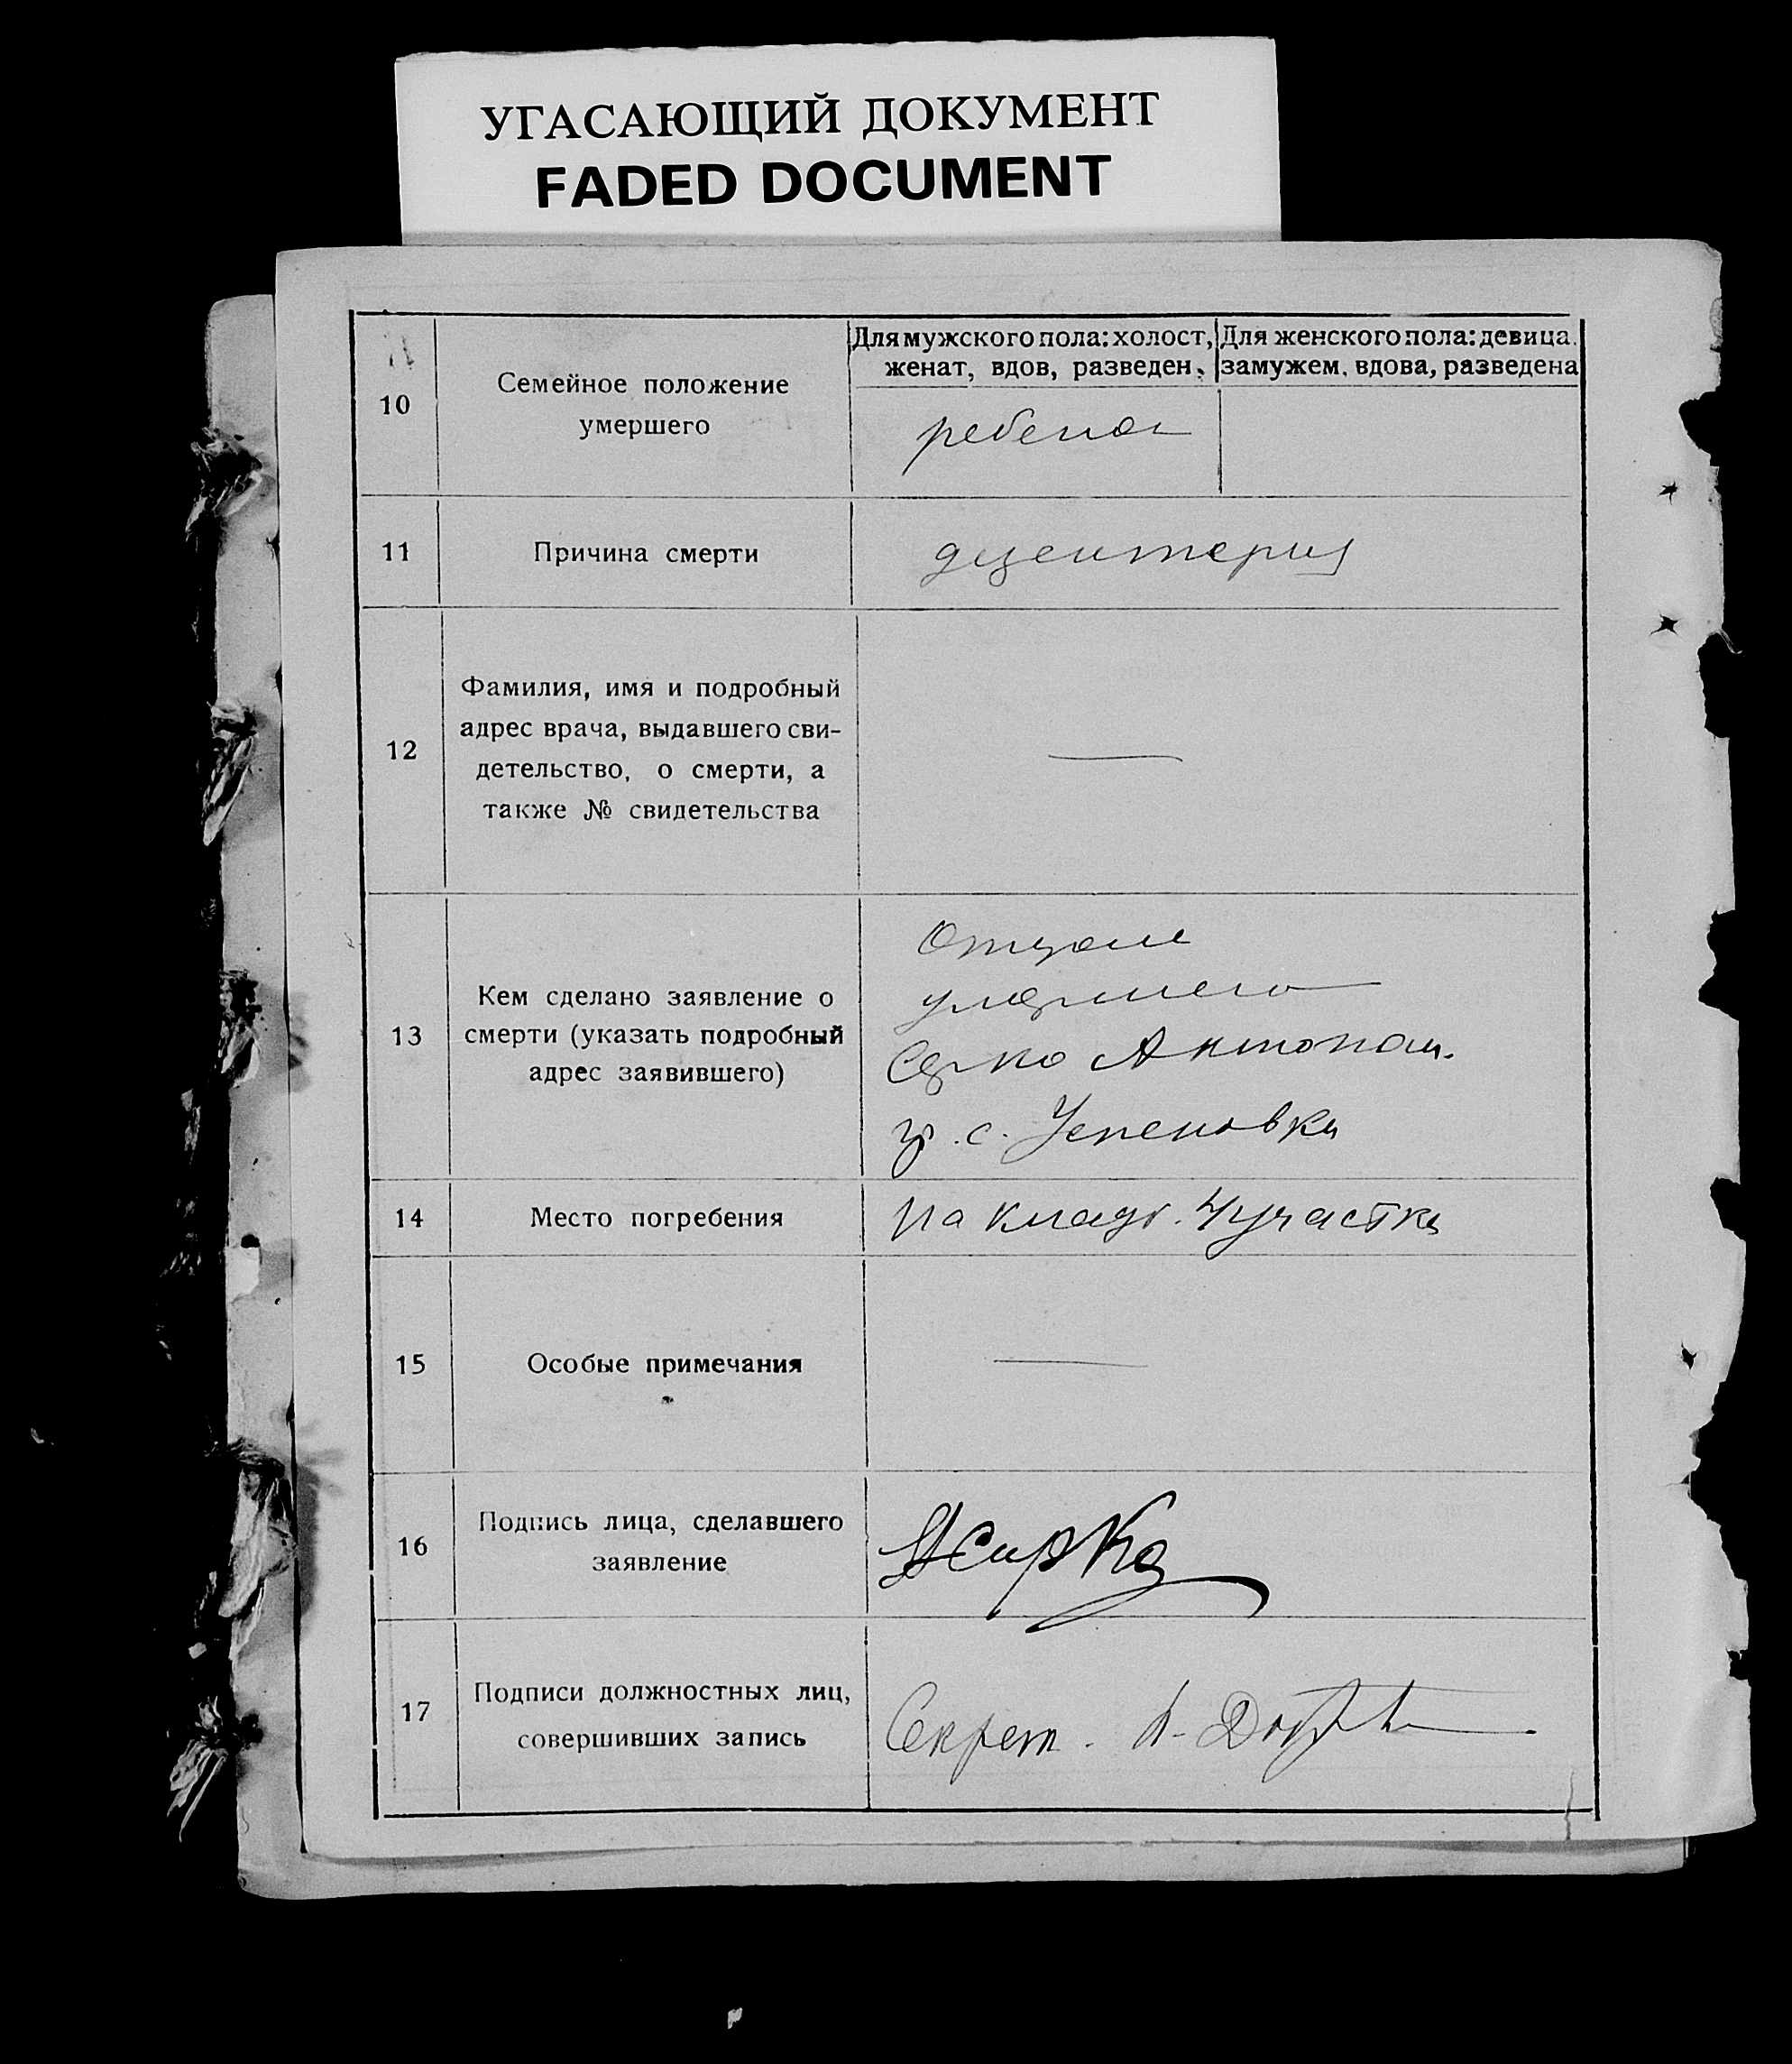 УГАСАЮЩИЙ ДОКУМЕНТ
FADED DOCUMENT
10
Семейное положение
умершего
Для мужского пола: холост,
женат, вдов, разведен.
Для женского пола: девица.
замужем. вдова, разведена
ребенок
11
Причина смерти
дезентерия
12
Фамилия, имя и подробный
адрес врача, выдавшего сви-
детельство, о смерти, а
также № свидетельства
13
Кем сделано заявление о
смерти (указать подробный
адрес заявившего)
Отцом
умершего
с. Успеновка
14
Место погребения
на кладб. 4 участка
15
Особые примечания
16
Подпись лица, сделавшего
заявление
АСирка
17
Подписи должностных лиц,
совершивших запись
Секрет.